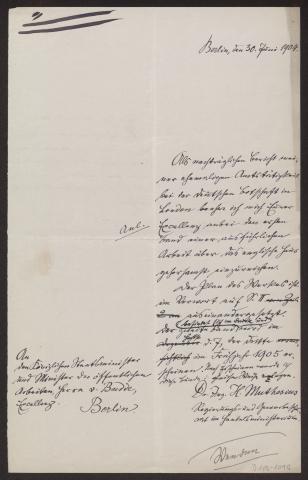 Berlin, den 30. Juni 1904.
Als nachträglichen Bericht mei-
ner ehemaligen Amtstätigkeit
bei der deutschen Botschaft in
London beehre ich mich Eurer
Anl.
Excellenz anbei den ersten
Band einer ausführlichen
Arbeit über das englische Haus
gehorsamst einzureichen.
Der Plan des Werkes ist
im Vorwort auf S. II
auseinandergesetzt.
Der zweite Band
d. J., der dritte
im Frühjahr 1905 er-
scheinen.
Dr. Ing. H. Muthesius
Regierungs- und Gewerbeschul-
rat im Handelsministerium.
An
den Königlichen Staatsminister
und Minister der öffentlichen
Arbeiten Herrn v. Budde,
Excellenz.
Berlin